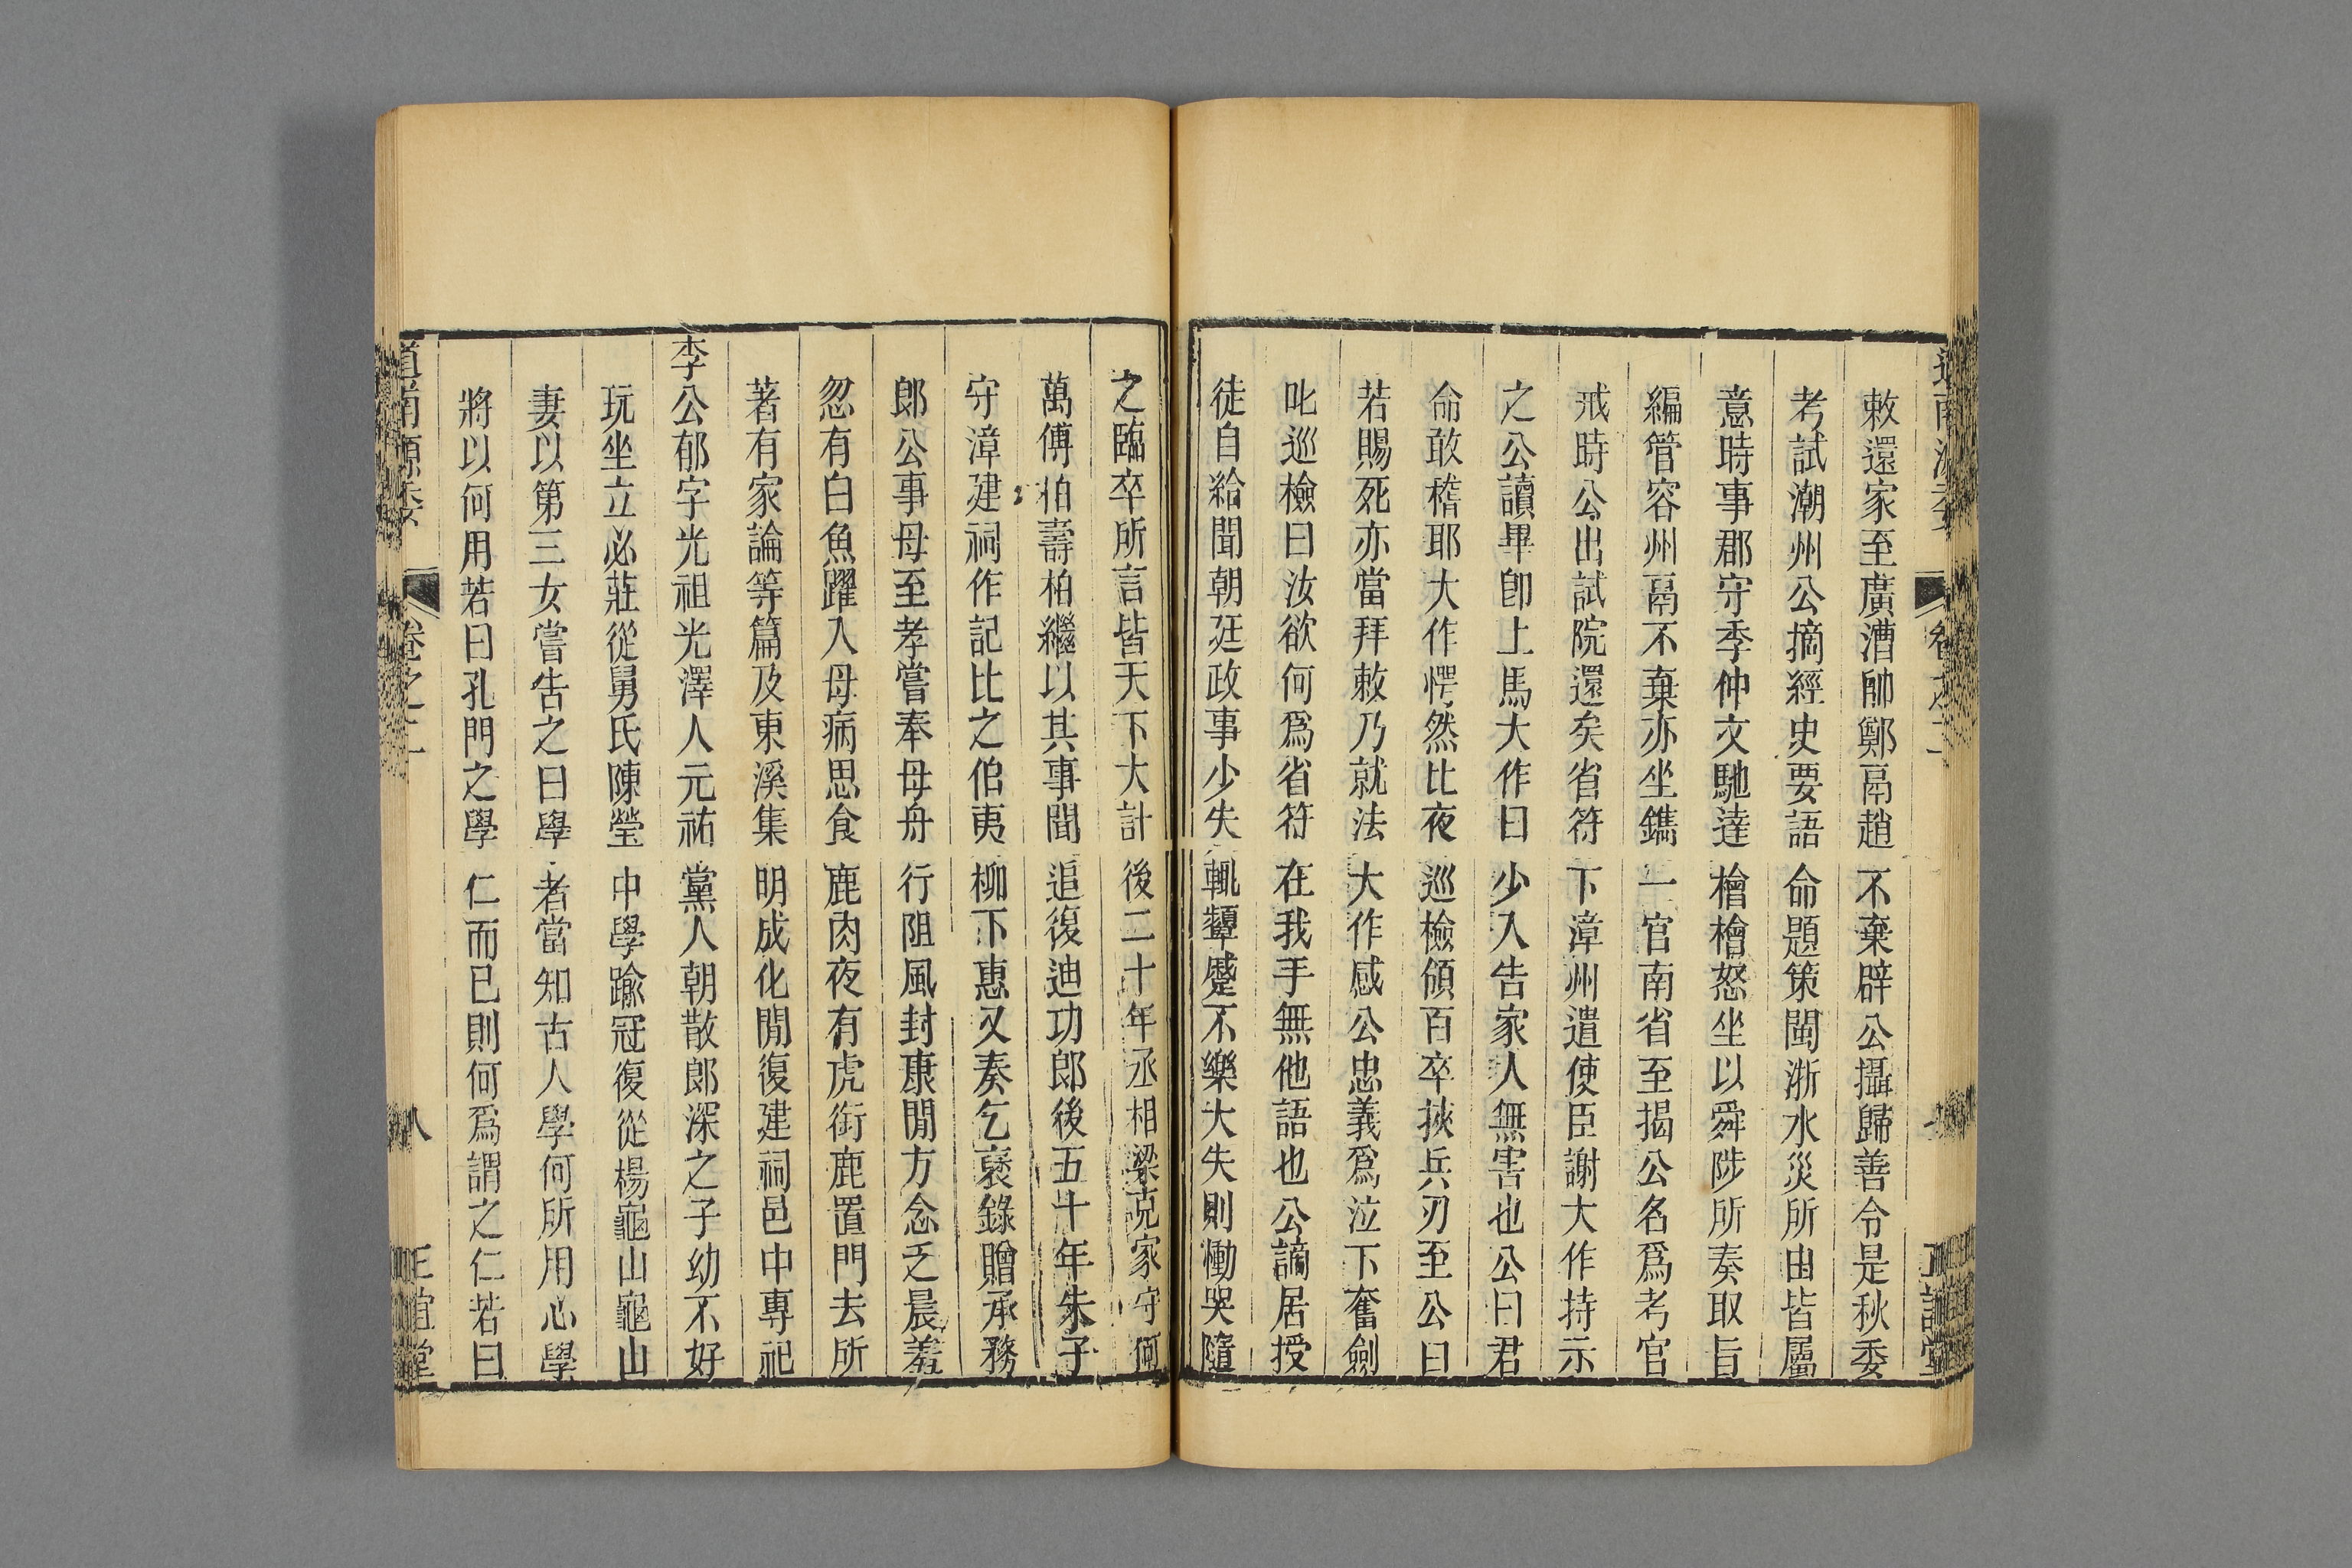 敕還家至廣漕帥鄭鬲趙不棄辟公攝歸善令是秋委
考試潮州公摘經史要語命題策閩浙水災所由皆屬
意時事郡守季仲文馳達檜檜怒坐以舜陟所奏取旨
編管容州鬲不棄亦坐鐫一官南省至揭公名爲考官
戒時公出試院還矣省符下漳州遣使臣謝大作持示
之公讀畢卽上馬大作曰少入告家人無害也公曰君
命敢稽耶大作愕然比夜巡檢領百卒挾兵刃至公曰
若賜死亦當拜敕乃就法大作感公忠義爲泣下奮劍
叱巡檢曰汝欲何爲省符在我手無他語也公謫居授
徒自給聞朝廷政事少失輒顰蹙不樂大失則慟哭隨
之臨卒所言皆天下大計後二十年丞相梁克家守何
萬傅伯壽柏繼以其事聞追復迪功郎後五十年朱子
守漳建祠作記比之伯夷柳下惠又奏乞褒錄贈承務
郎公事母至孝嘗奉母舟行阻風封康間方念乏晨羞
忽有白魚躍入母病思食鹿肉夜有虎銜鹿置門去所
著有家論等篇及東溪集明成化間復建祠邑中專祀
李公郁字光祖光澤人元祐黨人朝散郎深之子幼不好
玩坐立必莊從舅氏陳瑩中學踰冠復從楊龜山龜山
妻以第三女嘗告之曰學者當知古人學何所用心學
將以何用若曰孔門之學仁而已則何爲謂之仁若曰
道南源委 卷之二 八 正誼堂